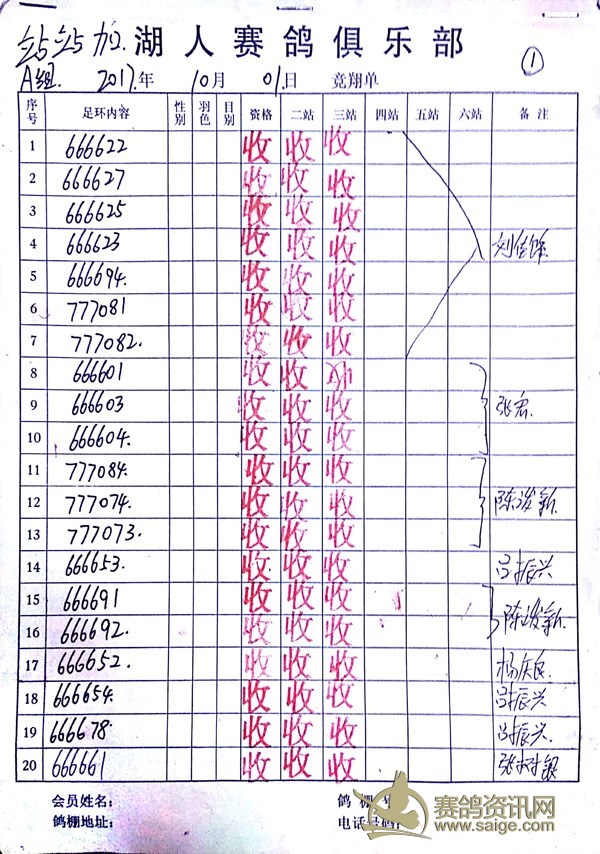 站站加. 湖人赛鸽俱乐部
①
A组. 2017年 10月 01日 竞翔单
序号 足环内容 性别 羽色 目别 资格 二站 三站 四站 五站 六站 备注
1 666622 收 收 收
2 666627 收 收 收
3 666625 收 收 收
4 666623 收 收 收
5 666694. 收 收 收
6 777081 收 收 收
7 777082. 收 收 收
8 666601 收 收 收
9 666603 收 收 收 张宏.
10 666604. 收 收 收
11 777084. 收 收 收
12 777074. 收 收 收 陈俊新.
13 777073. 收 收 收
14 666653. 收 收 收 吕振兴
15 666691 收 收 收 陈俊新.
16 666692. 收 收 收
17 666652. 收 收 收 杨庆良
18 666654. 收 收 收 吕振兴
19 666678. 收 收 收 吕振兴.
20 666661 收 收 收 张树银
会员姓名： 鸽棚号：
鸽棚地址： 电话号码：
赛鸽资讯网
www.saige.com